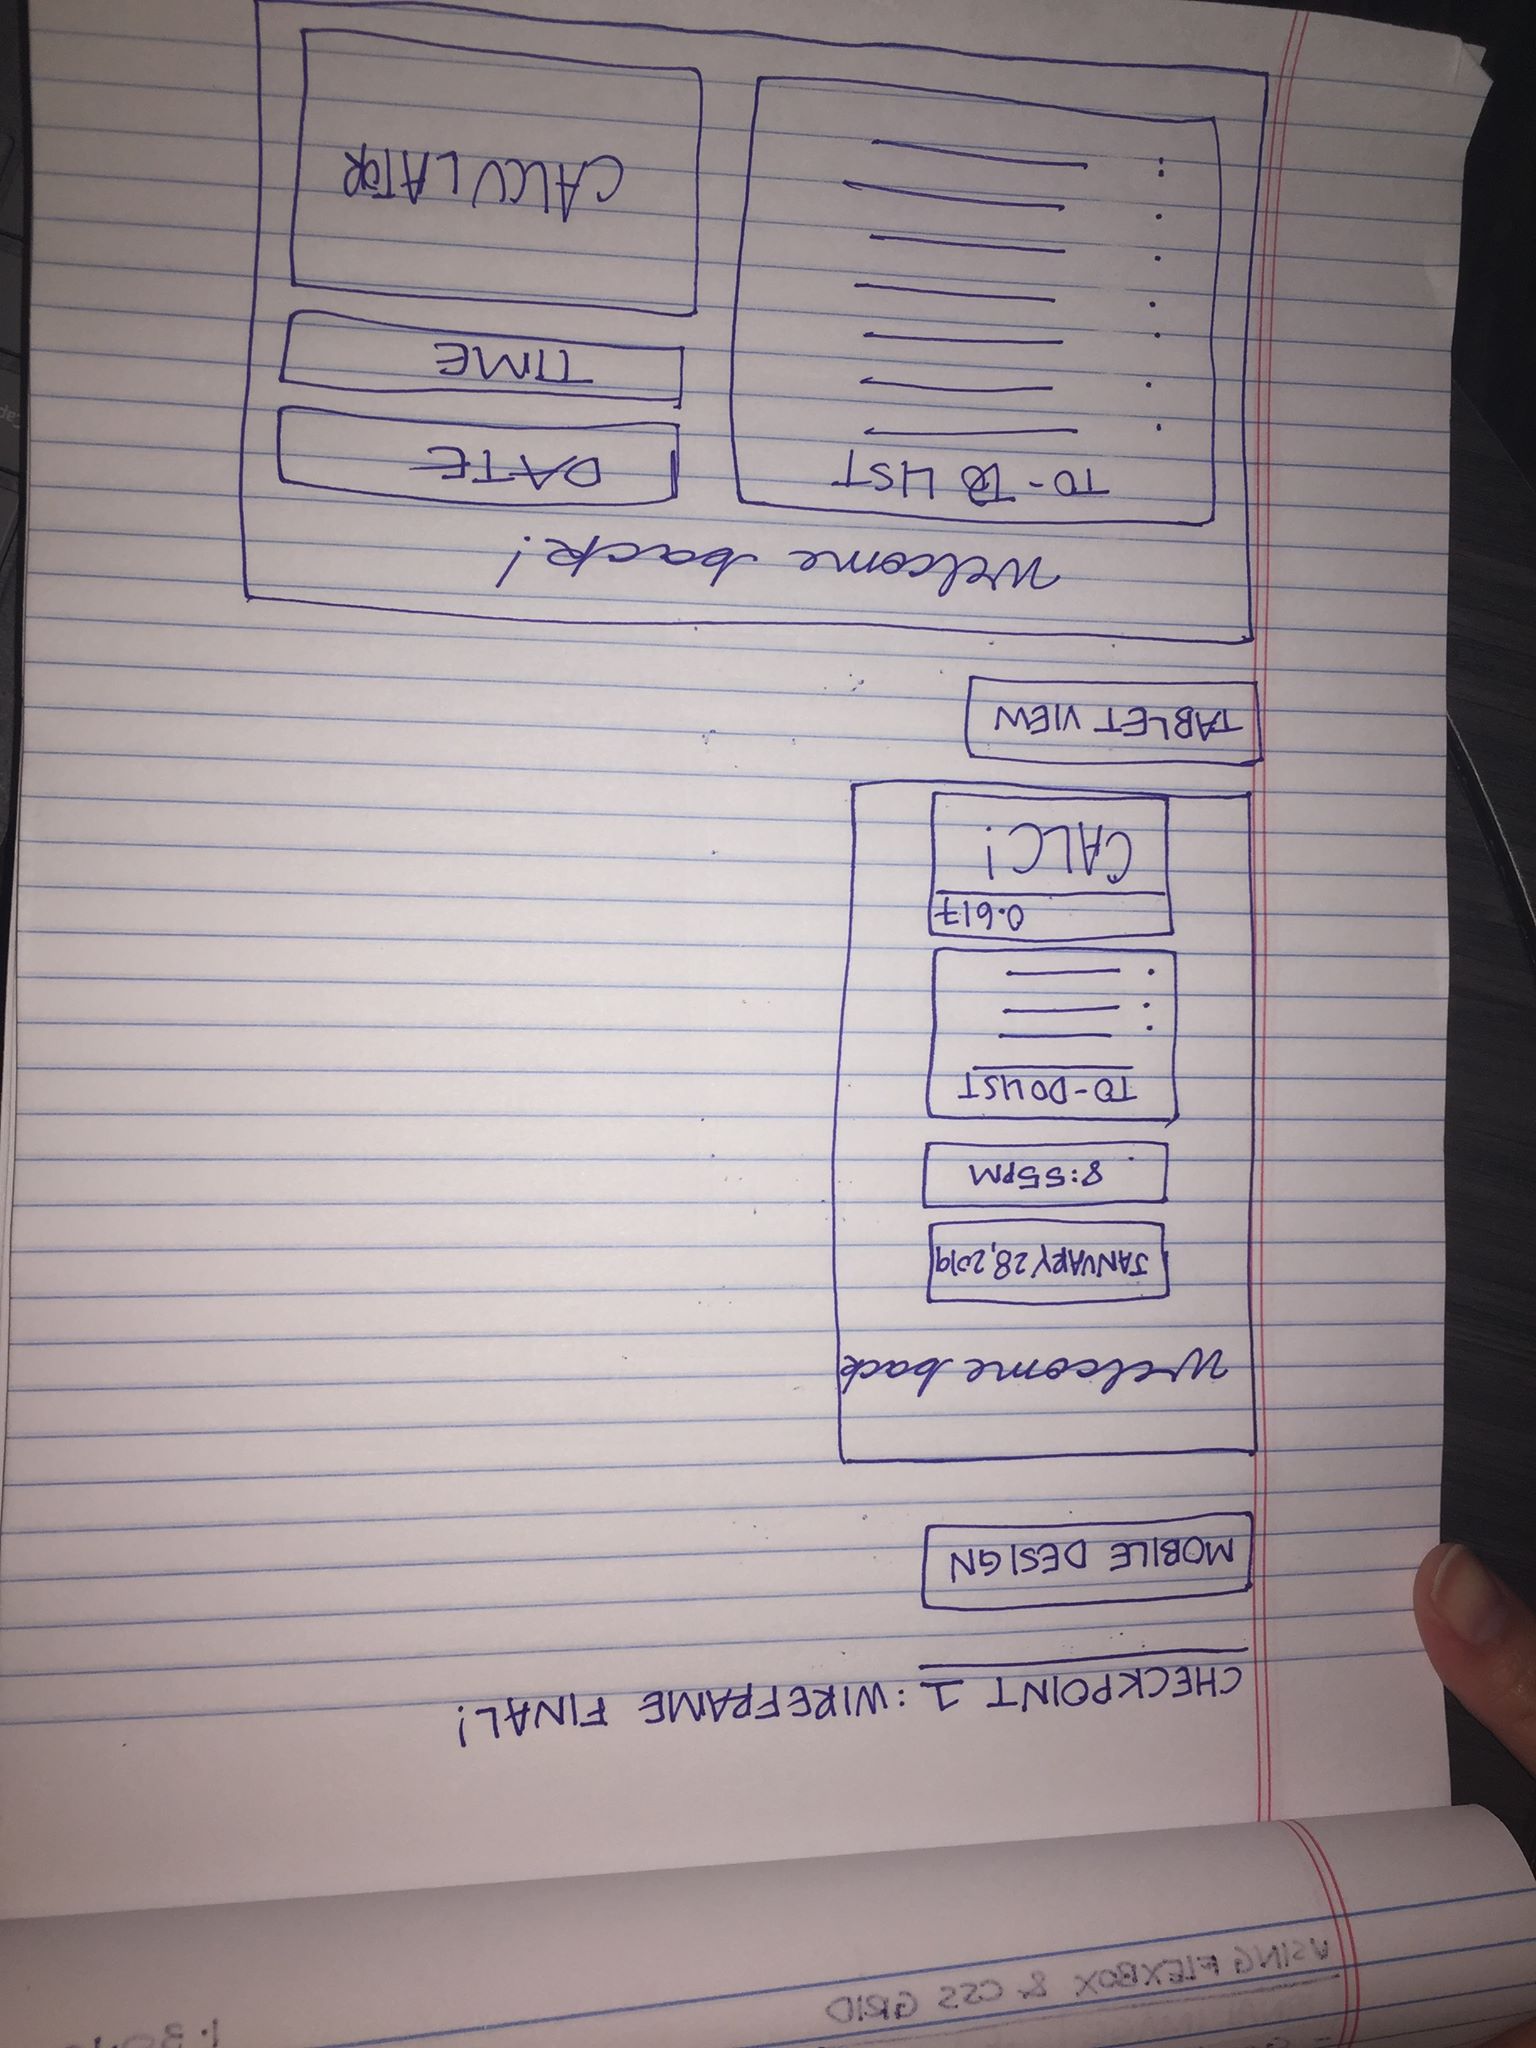 USING FLEXBOX & CSS GRID
CHECKPOINT 1: WIREFRAME FINAL!
MOBILE DESIGN
welcome back
JANUARY 28, 2019
8:55PM
TO-DO LIST
0.617
CALC!
TABLET VIEW
welcome back!
TO-DO LIST
DATE
TIME
CALCULATOR